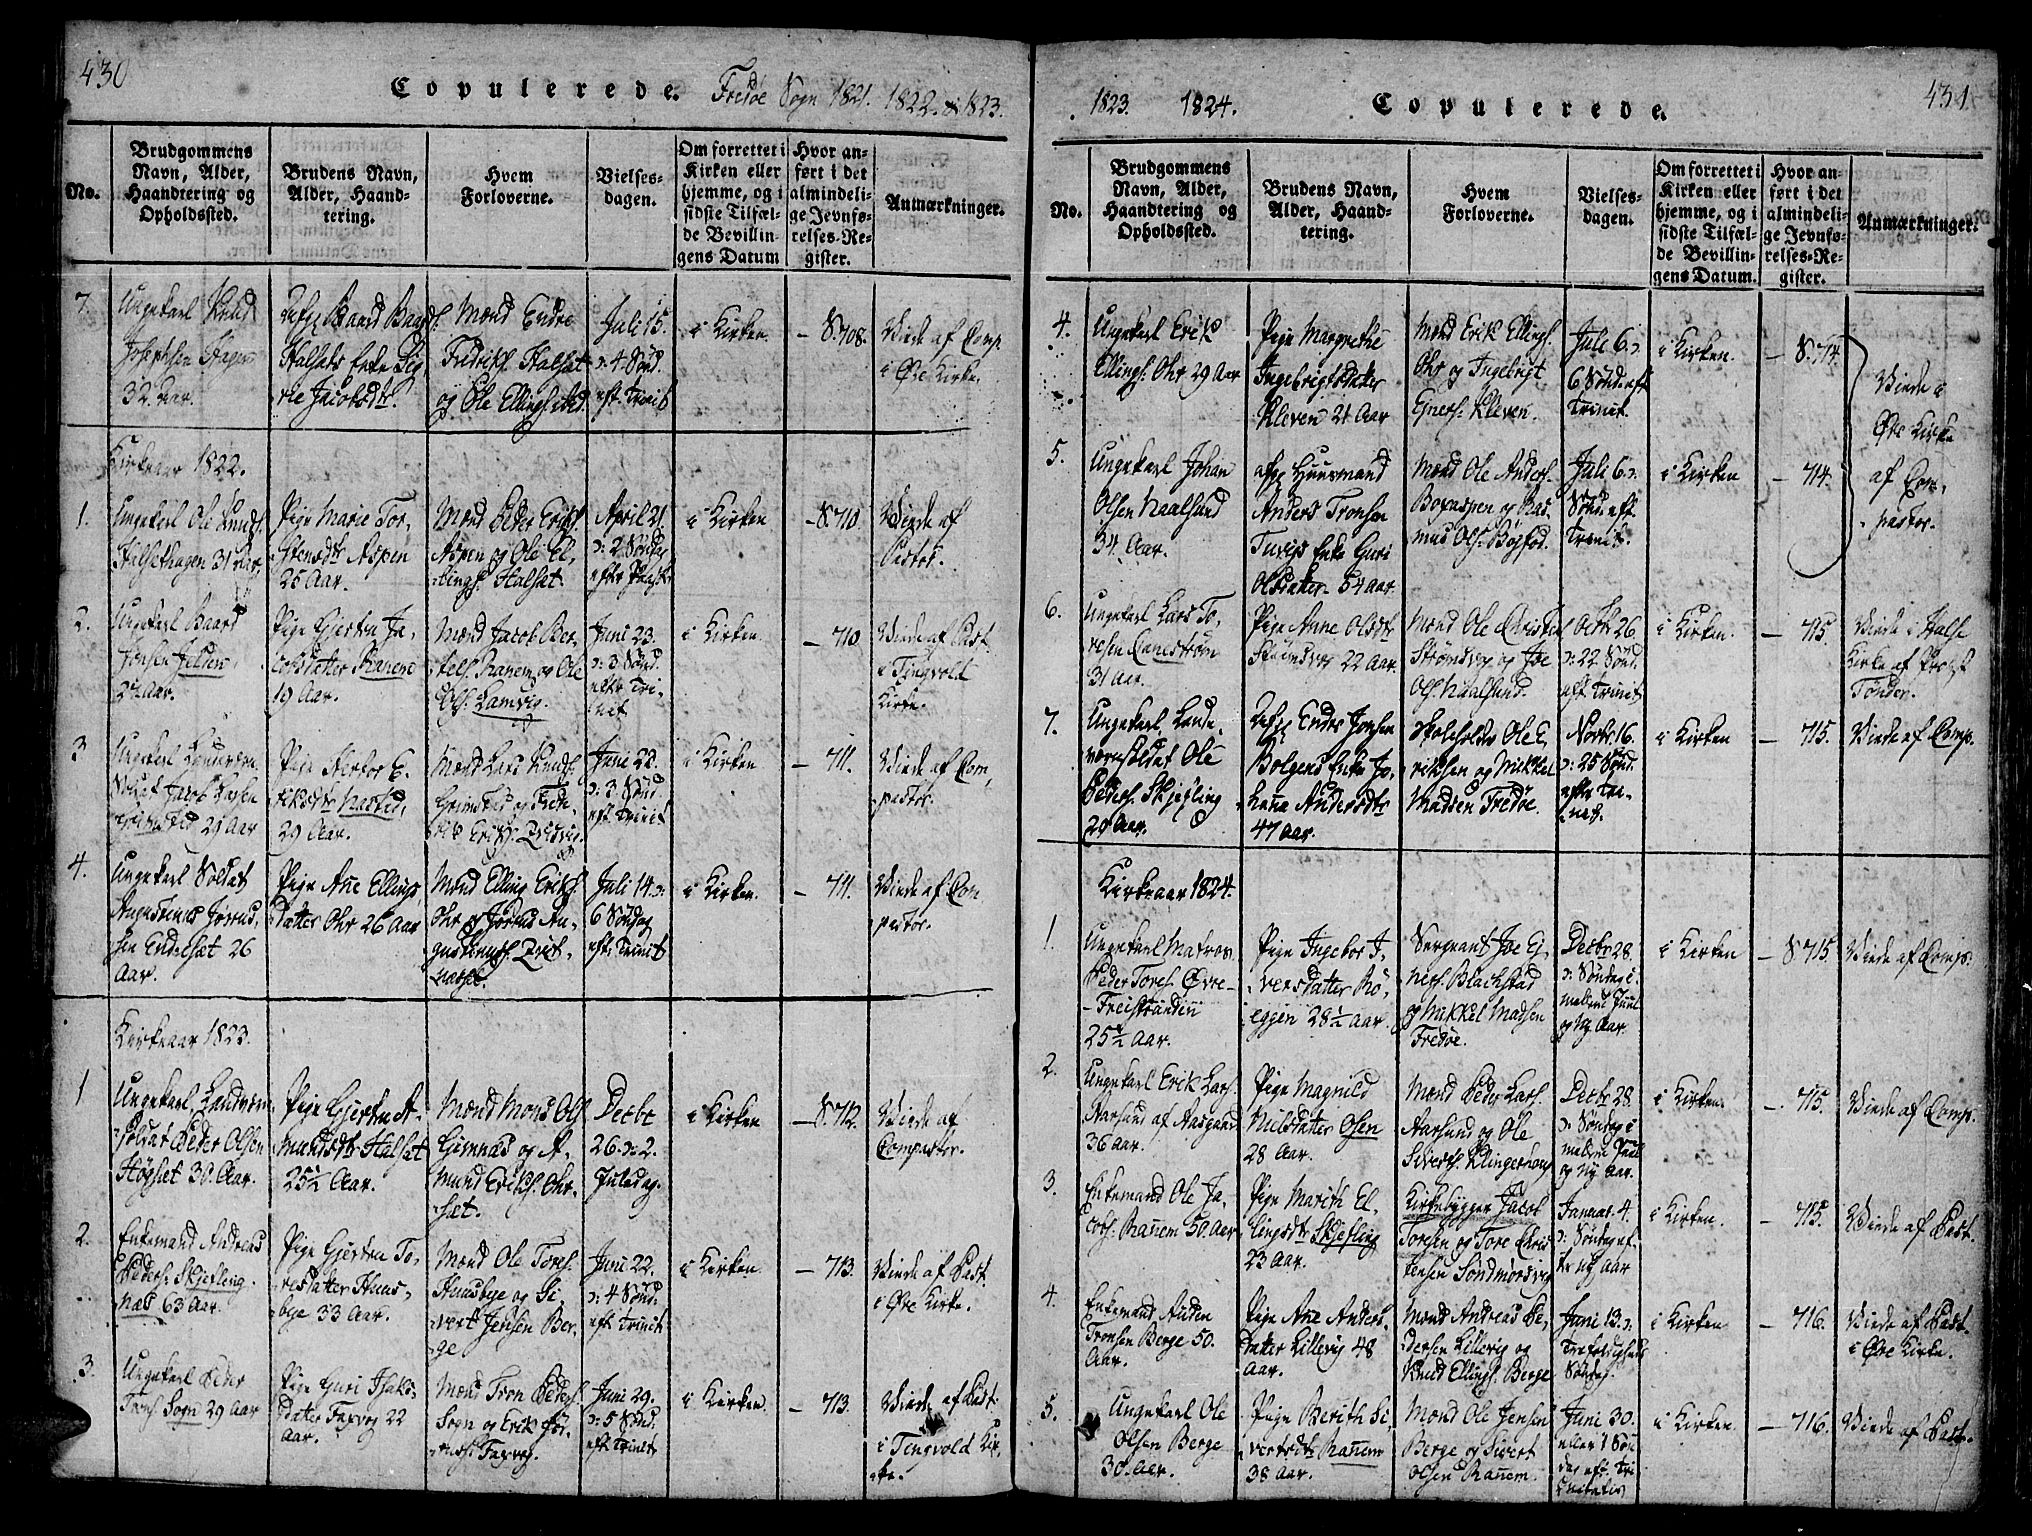 430
Copulerede. Fredøe Sogn 1821. 1822. 1823.
No.
Brudgommens
Navn, Alder,
Haandtering og
Opholdssted.
Brudens Navn,
Alder, Haand-
tering.
Hvem
Forloverne.
Vielses-
dagen.
Om forrettet i
Kirken eller
hjemme, og i
sidste Tilfæl-
de Bevillin-
gens Datum
Hvor an-
ført i det
almindeli-
ge Jevnfø-
relses-Re-
gister.
Anmærkninger.
7.
Ungekarl Knud
Josephsen Hagen
32 Aar.
Baard Baards.
Halsets Enke Sig
rie Jacobsdtr.
Mænd Endre
Fredriks. Halset
og Ole Ellings.
Juli 15.
ɔ: 4 Sønd.
eft. Trinit
i Kirken
- S. 708.
Viede af Comp.
i Øre Kirke.
Kirkeaar 1822.
1.
Ungekarl Ole Knuds.
Halsethagen 31 Aar,
Pige Marie Tor-
stensdtr Aspen
25 Aar.
Mænd Peder Eriks.
Aspen og Ole El-
lings. Halset.
April 21.
ɔ: 2 Søndag
efter Paaske
i Kirken
- S 710.
Viede af
Pastor.
2.
Ungekarl Baard
Jonsen
Aar.
Pige Gjertru Ja-
cobsdatter Ranem
19 Aar.
Mænd Jacob Ber-
tels. Ranem og Ole
Ols. Lamvig.
Juni 23.
ɔ: 3 Sønd.
efter Tri-
nit
i Kirken
- 710
Viede af Past.
i Tingvold
Kirke.
3
Ungekarl
Soldat Jacob
29 Aar
Pige
riksdtr
29 Aar.
Mænd Lars Knuds.
og Frede-
rik Eriks.
Juni 22.
ɔ: 3 Sønd.
eft Trinit
i Kirken
- 711.
Viede af Com-
pastor.
4.
Ungekarl Soldat
Augustinus
sen Endeset 26
Aar.
Pige Ane Ellings
datter Ohr 26 Aar
Mænd Elling Eriks.
Ohr og
Juli 14. ɔ:
6 Søndag
eft. Trinit
i Kirken.
- 711.
Viede af Com
pastor.
Kirkeaar 1823.
1
Ungekarl, Landværn-
soldat Peder Olsen
Høgset 30. Aar.
Pige Gjertru A-
mundsdtr Halset
25½ Aar.
Mænd Mons Ols.
Gimnæs og A-
mund Eriks. Ohr-
sæt.
Decbr
26. ɔ: 2.
Juledag.
i Kirken
- S 712.
Viede af
Compastor.
2.
Enkemand Andreas
Peders. Skjefling-
næs 63 Aar.
Pige Gjertru To-
resdatter Huus-
bye 33 Aar.
Mænd Ole Tores.
Huusbye og Si-
vert Jensen Ber-
ge
Juni 22.
ɔ: 4 Sønd.
eft Trinit
i Kirken.
- 713.
Viede af Past.
i Øre Kirke.
3.
Ungekarl Peder
Trons. Sogn 29 Aar
Pige Guri Isaks-
datter Faxvog 22
Aar.
Mænd Tron Peders.
Sogn og Erik
Faxvog.
Juni 29.
ɔ: 5 Sønd.
eft Trinit
i Kirken.
- 713.
Viede af Past.
i Tingvold Kir-
ke.
1823. 1824. Copulerede. 431
No.
Brudgommens
Navn, Alder,
Haandtering og
Opholdssted.
Brudens Navn,
Alder, Haand-
tering.
Hvem
Forloverne.
Vielses-
dagen.
Om forrettet i
Kirken eller
hjemme, og i
sidste Tilfæl-
de Bevillin-
gens Datum.
Hvor an-
ført i det
almindeli-
ge Jevnfø-
relses-Re-
gister.
Anmærkninger.
4.
Ungekarl Erik
Ellings. Ohr 29 Aar
Pige Margrethe
Ingebrigtsdatter
Kleven 21 Aar
Mænd Erik Ellings.
Ohr og Ingebrigt
Kleven.
Juli 6 ɔ:
6 Sønd. eft
Trinit.
i Kirken.
- S. 714.
Viede i
Øre Kirke
af Com-
pastor.
5.
Ungekarl Johan
Olsen Naalsund
34. Aar.
afg. Huusmand
Anders Tronsen
Enke Guri
Olsdatter 54 Aar.
Mænd Ole Anders.
Bogaspen og Ras-
mus Ols. Bøgfod.
Juli 6 ɔ:
Sønd. eft
Trinit.
i Kirken
- 714.
6.
Ungekarl Lars To-
resen
31 Aar.
Pige Anne Olsdtr
Strømsvog 22 Aar.
Mænd Ole
Strømsvog og Joe
Ols. Naalsund.
Octbr 26.
ɔ: 22 Sønd.
eft. Trinit
i Kirken.
- 715.
Viede i Halse
Kirke af Provst
Tønder.
7.
Ungekarl, Lande-
værnsoldat Ole
Peders. Skjefling
29 Aar.
afg. Endre Jonsen
Bolgens Enke Jo-
hanna Andersdtr
47 Aar.
Skoleholder Ole E-
riksen og Mikkel
Madsen Fredøe.
Novbr. 16.
ɔ: 25 Sønd.
efter Tri-
nit.
i Kirken
- 715.
Viede af Comp.
Kirkeaar 1824.
1.
Ungekarl Matros
Peder Tores. Øvre-
Freistranden
25½ Aar.
Pige Ingebor I-
versdatter Rø-
eggen 28½ Aar.
Sergeant Joe Ej-
ners. Blachstad
og Mikkel Madsen
Fredøe.
Decbr 28.
ɔ: Søndag i-
mellem Juul
og Ny Aar.
i Kirken
- S 715.
Viede af Comp.
2.
Ungekarl Erik Lars.
Aarsund af Aasgaard
36 Aar.
Pige Magnild
Nilsdatter Olsen
28 Aar.
Mænd Peder Lars.
Aarsund og Ole
Sivers. Klingernæs
Decbr 28.
ɔ: Søndag i-
mellem Juul
og ny Aar.
i Kirken.
- 715.
Viede af Comp.
3.
Enkemand Ole Ja-
cobs. Ranem 50 Aar
Pige Marith El-
lingsdtr Skjefling
23 Aar.
Kirkebygger Jacob
Torsen og Tore Chris
tensen Søndmørsvog
Januar. 4.
ɔ: Søndag ef-
ter ny Aar
i Kirken.
- 715.
Viede af Past.
4.
Enkemand Auden
Tronsen Berge 50.
Aar.
Pige Ane Anders-
datter Lillevig 48
Aar.
Mænd Andreas Pe-
dersen Lillevig og
Knud Ellings. Berge
Juni 13 ɔ:
Trefoldigheds
Søndag.
i Kirken
- 716.
Viede af Past.
i Øre Kirke.
5.
Ungekarl Ole
Olsen Berge
30. Aar.
Pige Berith Si-
vertsdtr Ranem
38 Aar.
Mænd Ole Jensen
Berge og Sivert
Olsen Ranem.
Juni 30.
eller 1 Søn-
dag eft. Tri-
nitatis
i Kirken
- 716.
Viede af Past.